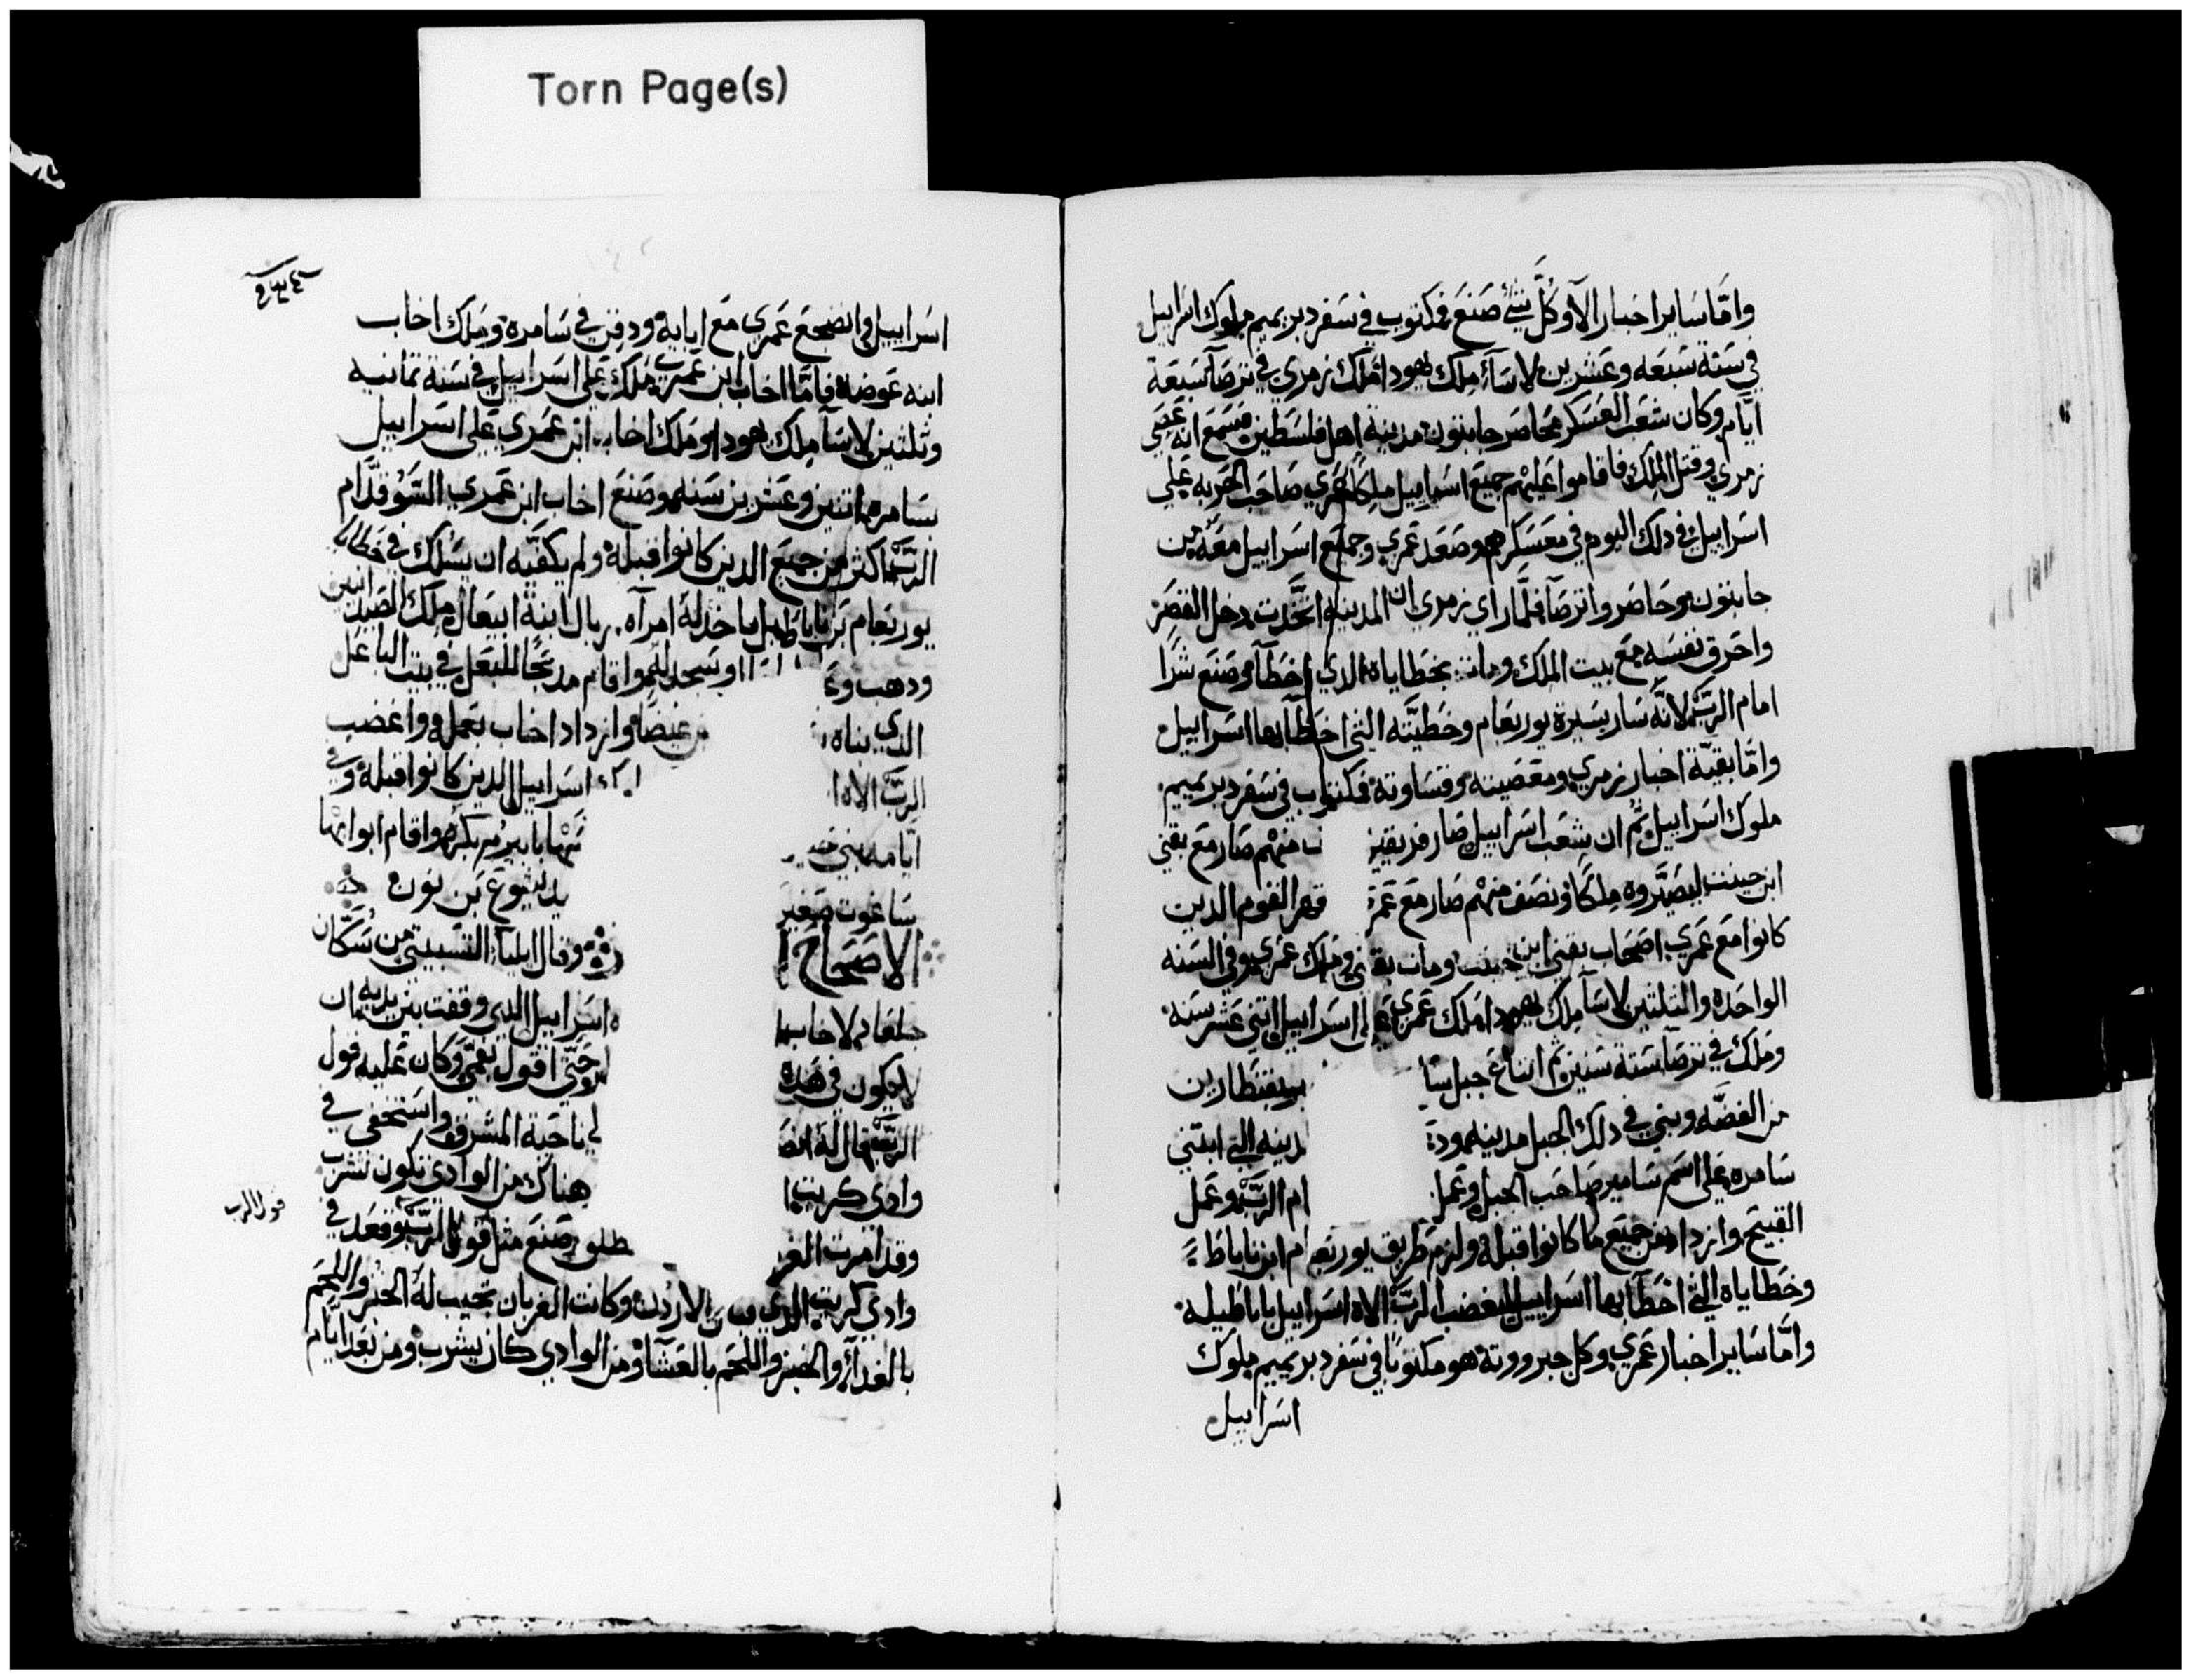 Torn Page(s)
واما ساير اخبار الا وكل شي صنع فمكتوب في سفر دبريميم ملوك اسراييل
في سنة سبعه وعشرين لاسا ملك يهودا ملك زمري في ترصا سبعة
ايام وكان شعب العسكر محاصر جابتون مدينة اهل فلسطين فسمع انه عصي
زمري وقتل الملك فاقاموا عليهم جميع اسراييل ملكا عمري صاحب الحربه علي
اسراييل في دلك اليوم في معسكرهم وصعد عمري وجميع اسراييل معه من
جابتون وحاصروا ترصا فلما راي زمري ان المدينه اتخدت دخل القصر
واحرق نفسه مع بيت الملك ومات بخطاياه الدي اخطا وصنع شرا
امام الرب لانه سار بسيرة يوربعام وخطيته التي اخطا بها اسراييل
واما بقية اخبار زمري ومعصيته وقساوته فمكتوب في سفر دبريميم
ملوك اسراييل ثم ان شعب اسراييل صار فريقين منهم صار مع بقني
ابن جينت ليصيروه ملكا ونصف منهم صار مع قهر القوم الدين
كانوا مع عمري اصحاب بقني ابن جينت ومات وملك عمري وفي السنه
الواحده والثلثين لاسا ملك يهودا ملك عمري علي اسراييل اثني عشر سنه
وملك في ترصا ستة سنين ثم ابتاع جبل بقنطارين
من الفضه وبني في دلك الجبل مدينه التي ابتني
سامره علي اسم سامير صاحب الجبل وعمل الرب وعمل
القبيح وازداد من جميع ما كانوا قبله ولزم طريق يوربعام ابن ناباط
وخطاياه التي اخطا بها اسراييل ليغضب الرب الاه اسراييل باباطيله
واما ساير اخبار عمري وكل جبرووته هو مكتوبا في سفر دبريميم ملوك
اسراييل
اسراييل واضجع عمري مع ابايه ودفن في سامره وملك اخاب
ابنه عوضه فاما اخاب ابن عمري ملك علي اسراييل في سنة ثمانيه
وثلثين لاسا ملك يهودا وملك اخاب ابن عمري علي اسراييل
بسامره اثنين وعشرين سنه وصنع اخاب ابن عمري السو قدام
الرب اكثر من جميع الدين كانوا قبله ولم يكفيه ان يسلك في خطايا
يوربعام بن ناباط بل ياخد له امراه ابنة ابيعال ملك
ودهب وسجد لهم واقام مدبحا للبعل في بيت الباعل
الدي بناه وازداد اخاب بعمله واغضب
الرب الاه اسراييل الدين كانوا قبله وفي
ايامه بني بابيرم بكره واقام ابوابها
ساغوب صغير يد يشوع بن نون
الاصحاح وقال ايليا التسبيتي من سكان
جلعاد لاخاب اسراييل الدي وقفت بين يديه ان
لا يكون في هده حتي اقول بفمي وكان عليه قول
الرب قال له ناحية المشرق واستخفي في
وادي كريت هناك من الوادي تكون تشرب
وقد امرت صنع مثل قول الرب وقعد في
قول الرب
وادي كريت الدي الاردن وكانت الغربان تجيب له الخبز واللحم
بالغداه والخبز واللحم بالعشا ومن الوادي كان يشرب ومن بعد ايام